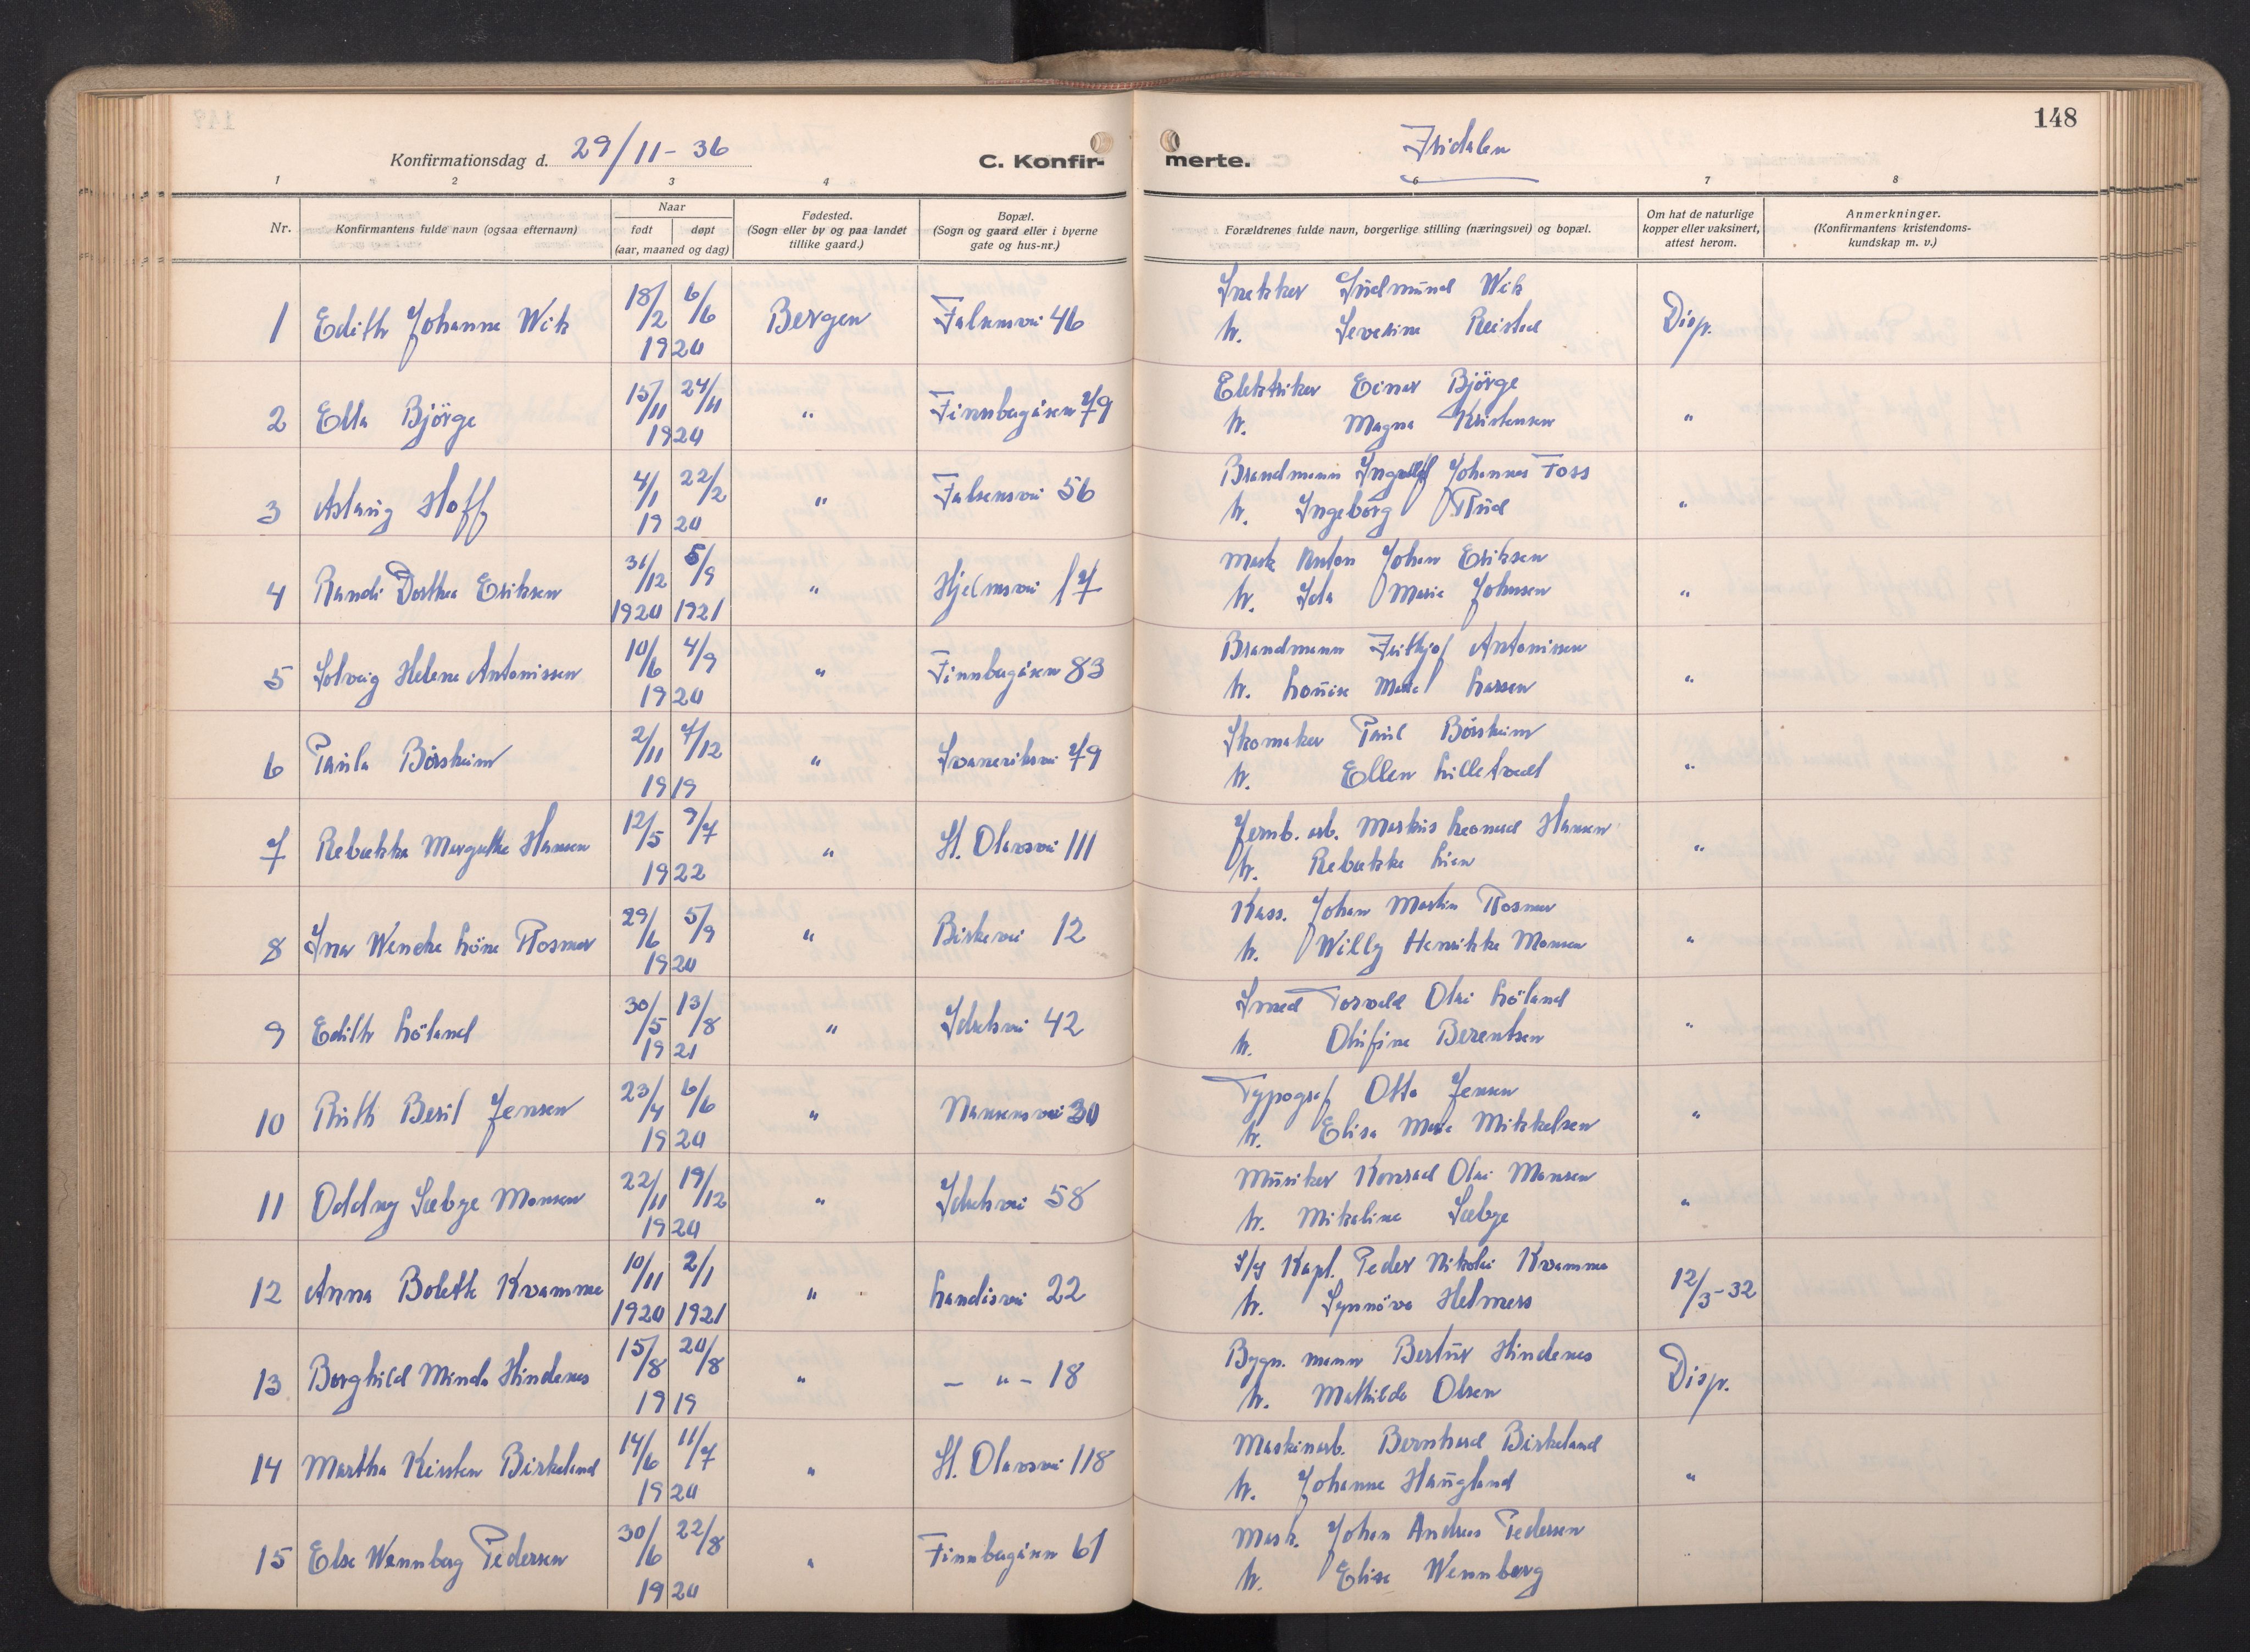 148
Konfirmationsdag d. 29/11-36 C. Konfir- merte. Fridalen
1 2 3 4 6 7 8
Nr. Konfirmantens fulde navn (ogsaa efternavn) Naar født døpt (aar, maaned og dag) Fødested. (Sogn eller by og paa landet tillike gaard.) Bopæl. (Sogn og gaard eller i byerne gate og hus-nr.) Forældrenes fulde navn, borgerlige stilling (næringsvei) og bopæl. Om hat de naturlige kopper eller vaksinert, attest herom. Anmerkninger. (Konfirmantens kristendoms- kundskap m. v.)
1 Edith Johanne Wik 18/2 6/6 1920 Bergen Falsensvei 46 Snekker Gudmund Wik Disp.
h. Severine Reistad
2 Ella Bjørge 15/11 24/11 1920 " Finnbergåsen 79 Elektriker Einar Bjørge "
h. Magna Kristensen
3 Aslaug Hoff 4/1 22/2 1920 " Falsensvei 56 Brandmann Johannes Foss "
h. Ingeborg Rud
4 Randi Dorthea Eriksen 31/12 5/9 1920 1921 " Hjelmsvei 17 Mask Anton Johan Eriksen "
h. Ida Marie Johnsen
5 Solveig Helene Antonissen 10/6 4/9 1920 " Finnbergåsen 83 Brandmann Frithjof Antonissen "
h. Louise Marie Larsen
6 Paula Børsheim 2/11 7/12 1919 " 79 Skomaker Paul Børsheim "
h. Ellen Lilletvedt
7 Rebekka Margrethe Hansen 12/5 9/7 1922 " St. Olavsvei 111 Jernb. arb. Markus Leonard Hansen "
h. Rebekka Lien
8 Wencke Løne Rosmer 29/6 5/9 1920 " Birkevei 12 Kass. Johan Martin Rosmer "
h. Willy Henrikke Monsen
9 Edith Løland 30/5 13/8 1921 " Idrettsvei 42 Smed Torvald Olai Løland "
h. Olufine Berentsen
10 Ruth Beril Jensen 23/4 6/6 1920 " Nansensvei 30 Typograf Otto Jensen "
h. Elisa Marie Mikkelsen
11 Oddny Sæbye Monsen 22/11 19/12 1920 " Idrettsvei 58 Musiker Konrad Olai Monsen "
h. Mikaline Sæbye
12 Anna Boleth Kvamme 10/11 2/1 1920 1921 " Landåsvei 22 Kapt. Peder Nikolai Kvamme 12/3-32
h. Synnøve Helmers
13 Borghild Minda Hindenes 15/8 20/8 1919 " - " - 18 Bygn. mann Bertin Hindenes Disp.
h. Mathilde Olsen
14 Martha Kirsten Birkeland 14/6 11/7 1920 " St. Olavsvei 118 Maskinarb. Bernhard Birkeland "
h. Johanne Haugland
15 Else Wennberg Pedersen 30/6 22/8 1920 " Finnbergåsen 61 Mask. Johan Andreas Pedersen
h. Elise Wennberg